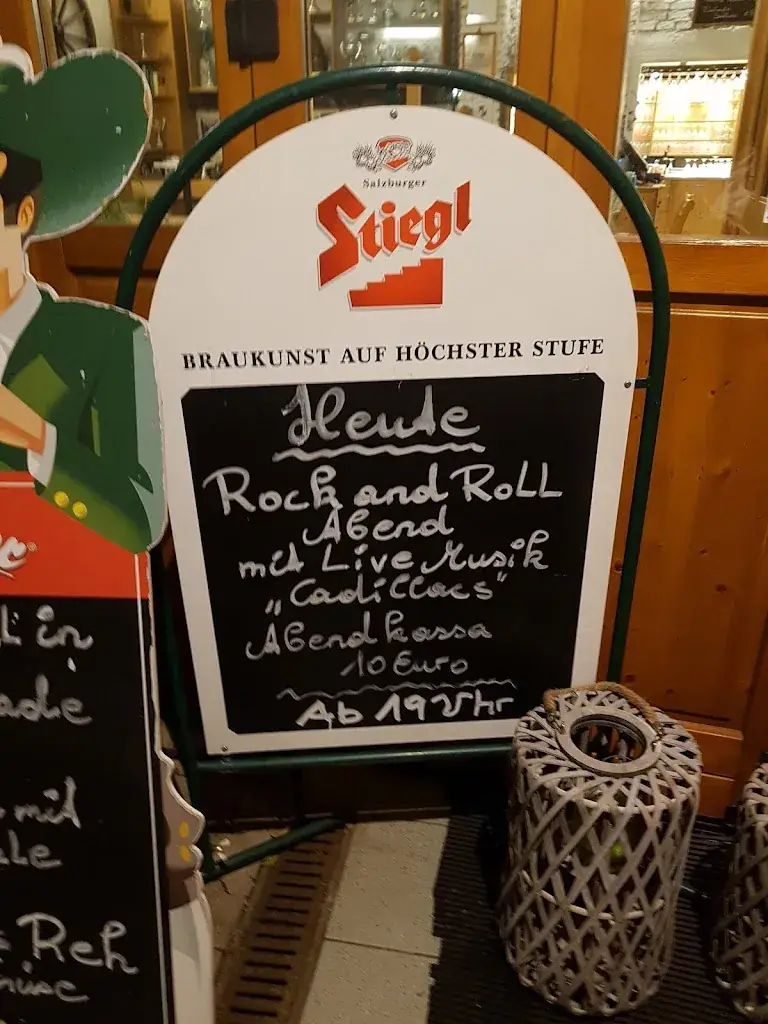 Salzburger
Stiegl
BRAUKUNST AUF HÖCHSTER STUFE
Heute
Rock and RoLL
Abend
mit Live Musik
„Cadillacs"
Abendkassa
10 Euro
Ab 19 Uhr
in
mit
Reh